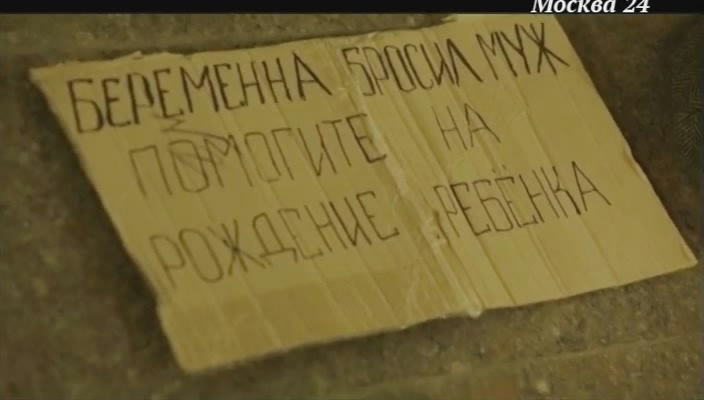 Москва 24
БЕРЕМЕННА БРОСИЛ МУЖ
ПОМОГИТЕ НА
РОЖДЕНИЕ РЕБЁНКА